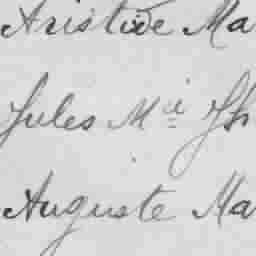 Aristide Ma
Jules Mie Th
Auguste Ma